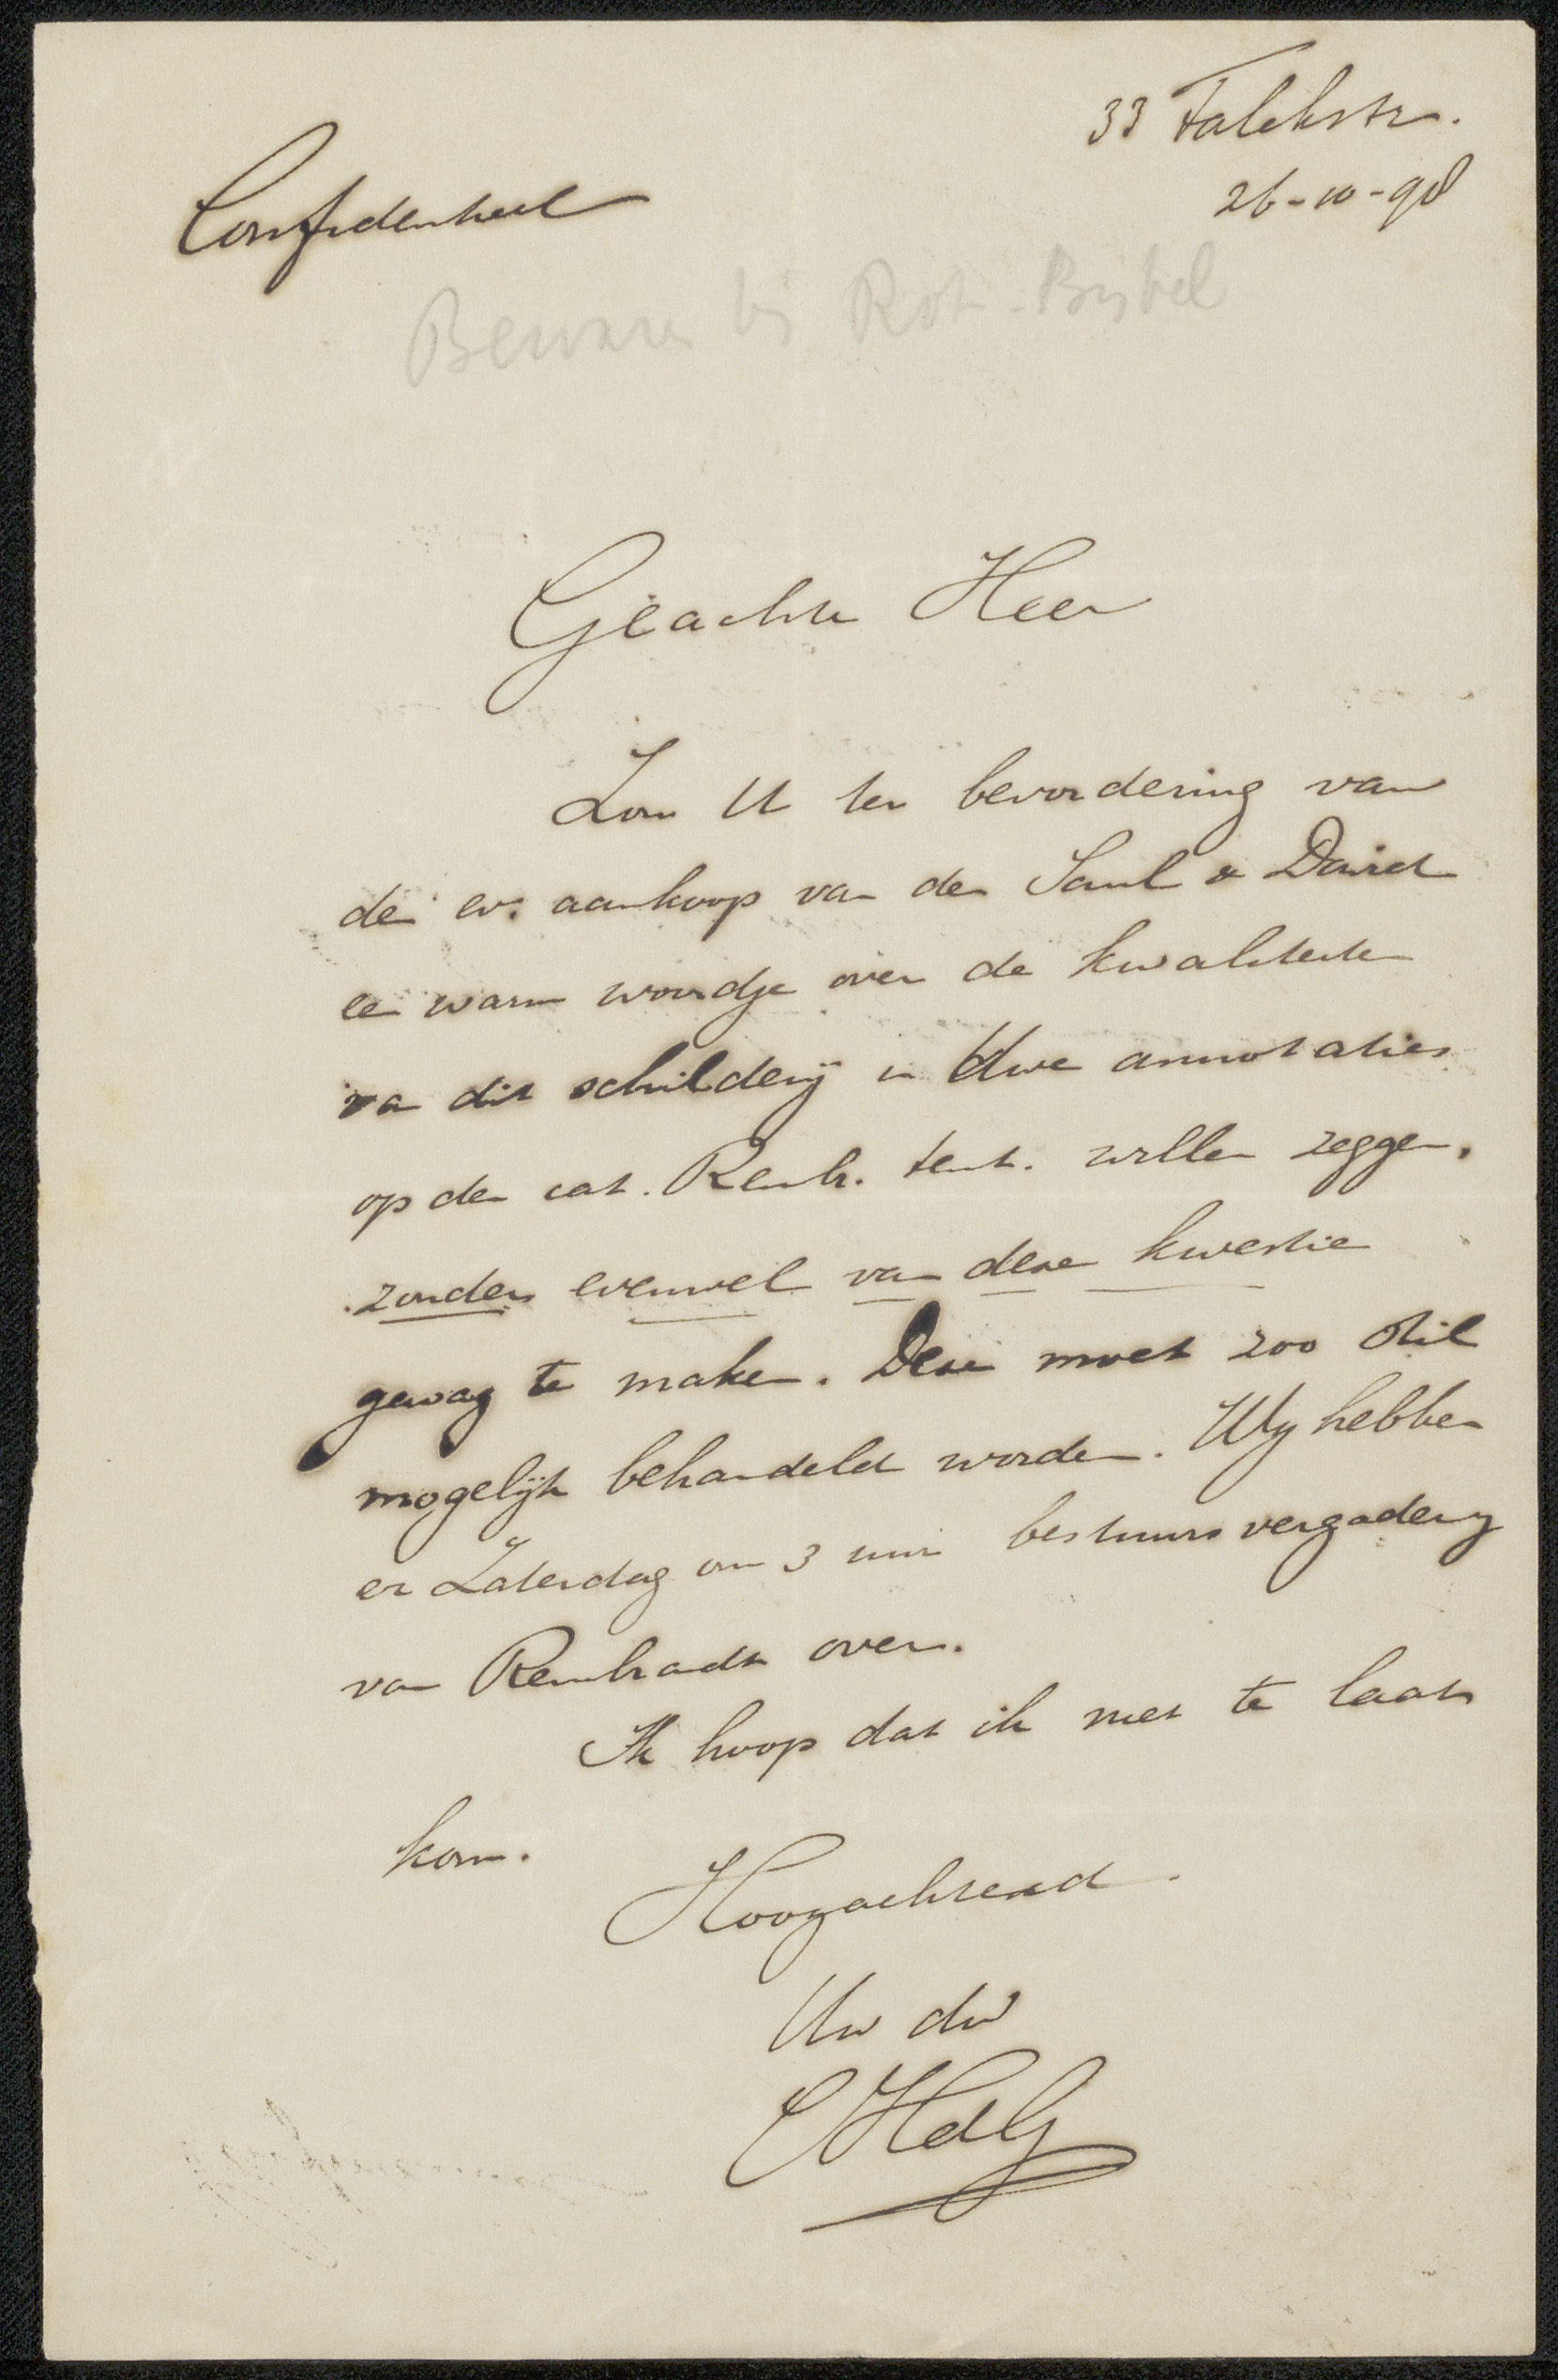 33 Falckstr.
26-10-98
Confidentieel
Bewaren bij Rot. Bijbel
Geachte Heer
Zou U ter bevordering van
den ev. aankoop van den Saul & David
een warm woordje over de kwaliteiten
van dit schilderij in Uwe annotaties
op den cat. Remb. tent. willen zeggen,
zonder evenwel van deze kwestie
gewag te maken. Deze moet zoo stil
mogelijk behandeld worden. Wij hebben
er Zaterdag om 3 uur bestuursvergadering
van Rembrandt over.
Ik hoop dat ik niet te laat
kom.
Hoogachtend
Uw dw
CHdG